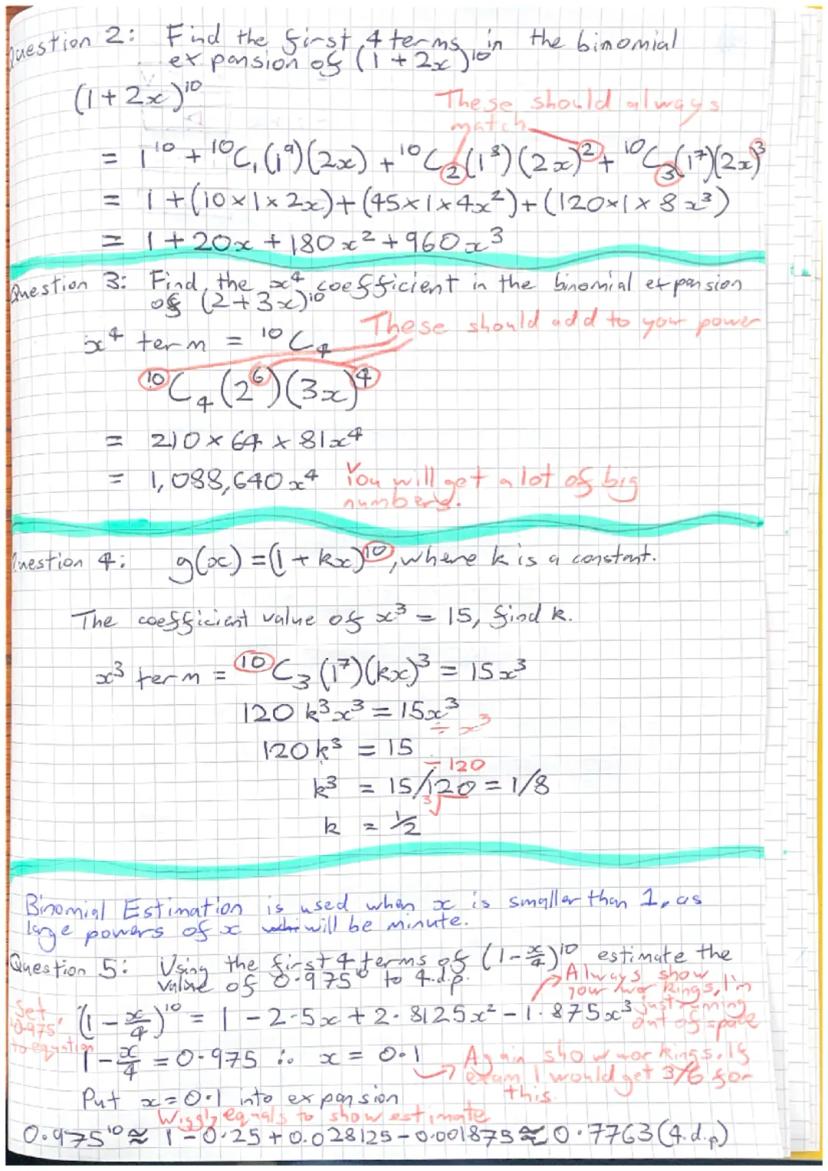 Question 2: Find the first 4 terms in the binomial
expansion of (1 + 2x)¹⁰
(1 + 2x)¹⁰
These should always
match
= 1¹⁰ + ¹⁰C₁(1⁹)(2x) + ¹⁰C₂(1⁸)(2x)² + ¹⁰C₃(1⁷)(2x)³
= 1 + (10 × 1 × 2x) + (45 × 1 × 4x²) + (120 × 1 × 8x³)
= 1 + 20x + 180x² + 960x³
Question 3: Find the x⁴ coefficient in the binomial expansion
of (2 + 3x)¹⁰
These should add to your power
x⁴ term = ¹⁰C₄
¹⁰C₄(2⁶)(3x)⁴
= 210 × 64 × 81x⁴
= 1,088,640x⁴ You will get a lot of big
numbers.
Question 4: g(x) = (1 + kx)¹⁰, where k is a constant.
The coefficient value of x³ = 15, find k.
x³ term = ¹⁰C₃(1⁷)(kx)³ = 15x³
120k³x³ = 15x³
÷ x³
120k³ = 15
÷ 120
k³ = 15/120 = 1/8
³√
k = ½
Binomial Estimation is used when x is smaller than 1, as
large powers of x will be minute.
Question 5: Using the first 4 terms of (1 - x/4)¹⁰ estimate the
value of 0.975¹⁰ to 4.d.p.
Always show
your workings, I'm
just running
out of space
Set
'0.975'
to equation
(1 - x/4)¹⁰ = 1 - 2.5x + 2.8125x² - 1.875x³
1 - x/4 = 0.975 ∴ x = 0.1
Again show workings. If
exam I would get 3/6 for
this.
Put x = 0.1 into expansion
Wiggly equals to show estimate
0.975¹⁰ ≈ 1 - 0.25 + 0.028125 - 0.001875 ≈ 0.7763 (4.d.p)